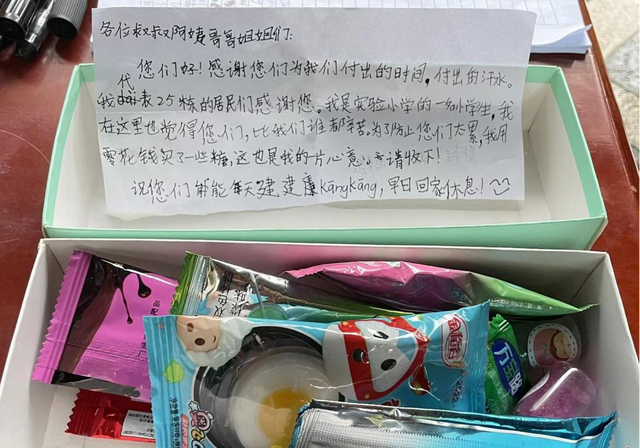 各位叔叔阿姨哥哥姐姐们:
您们好!感谢您们为我们付出的时间,付出的汗水。
我代表25栋的居民们感谢您。我是实验小学的一名小学生,我
在这里也觉得您们,比我们谁都辛苦。为了防止您们太累,我用
零花钱买了一些糖,这也是我的一片心意。请收下!
祝您们都能每天健建康kāngkāng,早日回家休息!